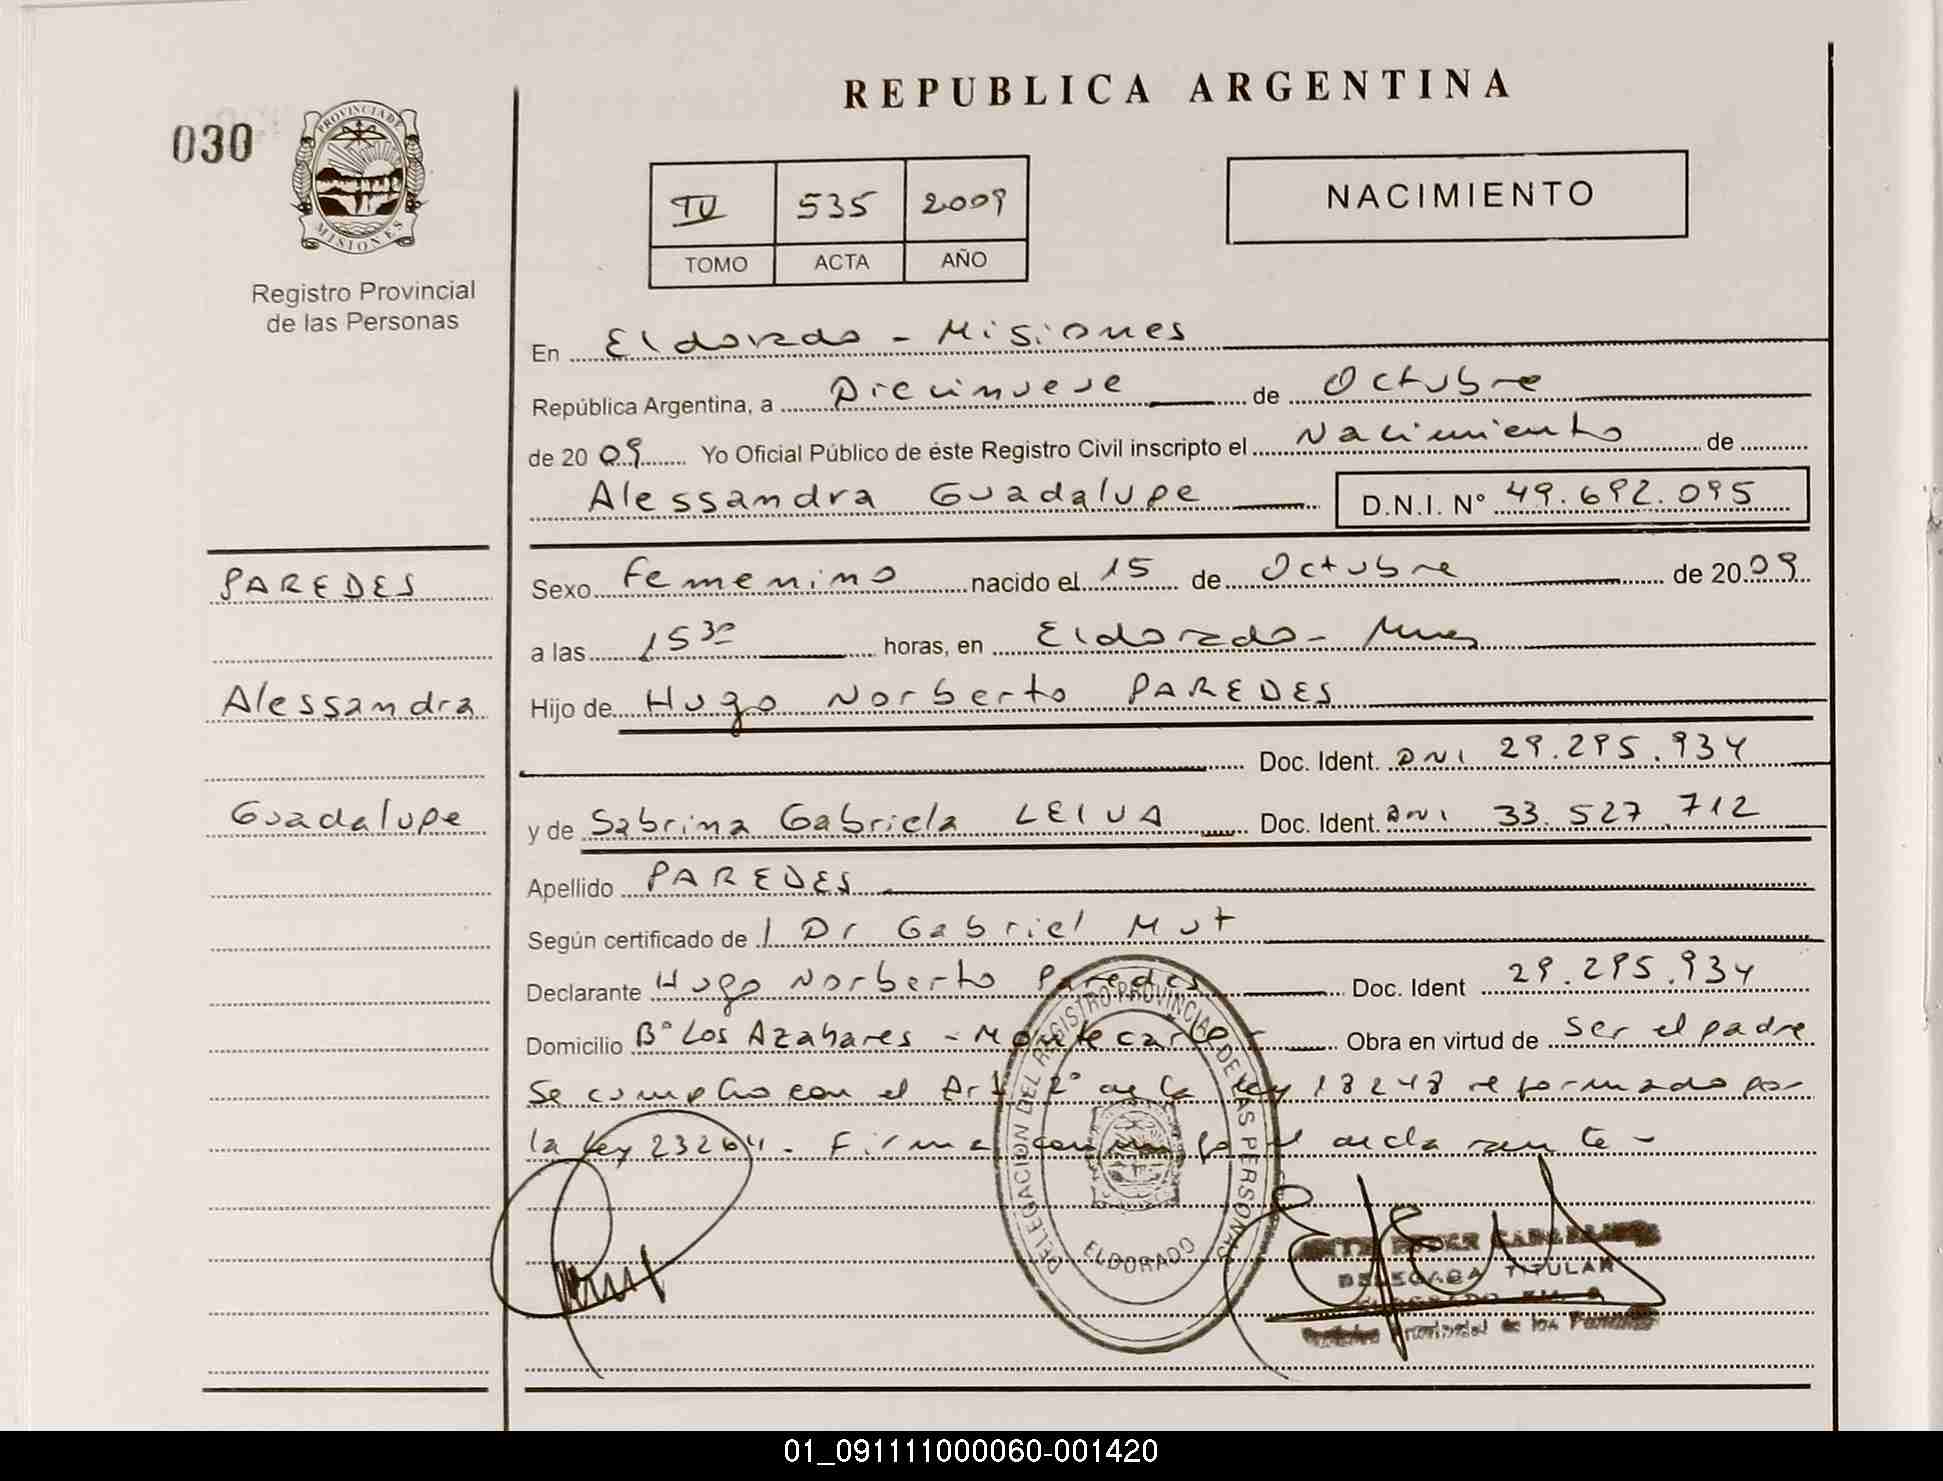 REPUBLICA ARGENTINA
030
PROVINCIA DE
MISIONES
Registro Provincial
de las Personas
IV 535 2009
TOMO ACTA AÑO
NACIMIENTO
En Eldorado - Misiones
República Argentina, a Diecinueve de Octubre
de 2009 Yo Oficial Público de éste Registro Civil inscripto el Nacimiento de
Alessandra Guadalupe D.N.I. Nº 49.692.095
PAREDES
Alessandra
Guadalupe
Sexo Femenino nacido el 15 de Octubre de 2009
a las 15 30 horas, en Eldorado - Mnes
Hijo de Hugo Norberto PAREDES
Doc. Ident. DNI 29.295.934
y de Sabrina Gabriela LEIVA Doc. Ident. DNI 33.527.712
Apellido PAREDES
Según certificado de l Dr Gabriel Mut
Declarante Hugo Norberto Paredes Doc. Ident 29.295.934
Domicilio Bº Los Azahares - Montecarlo - Obra en virtud de ser el padre
Se cumplio con el Art 2º de la ley 18248 reformado por
la ley 23264 - Firma conmigo el declarante -
DELEGACION DEL REGISTRO PROVINCIAL DE LAS PERSONAS
ELDORADO
DELEGADA TITULAR
Provincial de las
01_091111000060-001420